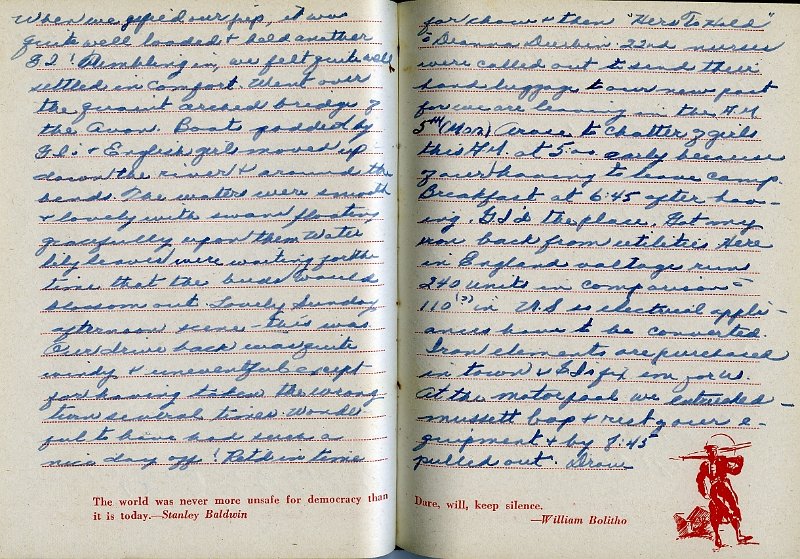 When we
quite well loaded & held another
G I! Rambling in, we felt quite well
settled in comfort. Went over
the quaint arched bridge of
the Avon. Boats paddled by
G.I.s & English girls moved up -
down the river & around the
bends. The waters were smooth
& lovely with swans floating
gracefully upon them Water
lily leaves were waiting for the
time that the buds would
blossom out. Lovely Sunday
afternoon scene - this was.
Our drive back was quite
windy & uneventful except
for having taken the wrong
turn several times. Wonder
ful to have had such a
nice day off! Ret'd in time
The world was never more unsafe for democracy than
it is today.—Stanley Baldwin
for chow & then "Hers To Hold"
c̄ Deanna Durbin. 22nd nurses
were called out to send their
hand luggage to our new post
for we are leaving in the A.M
5th (Mon) Arose to chatter of girls
this A.M. at 5:00 early because
of our having to leave camp.
Breakfast at 6:45 after hav-
ing G.I'd the place. Got my
iron back from utilities Here
in England voltage runs
240 units in comparison c̄
110 (?) in U.S so electrical appli-
ances have to be converted.
Iron elements are purchased
in town & GIs fix em for us.
At the motor pool we entrucked -
mussett bag & rest of our e-
quipment & by 7:45
pulled out. Drove
Dare, will, keep silence.
—William Bolitho